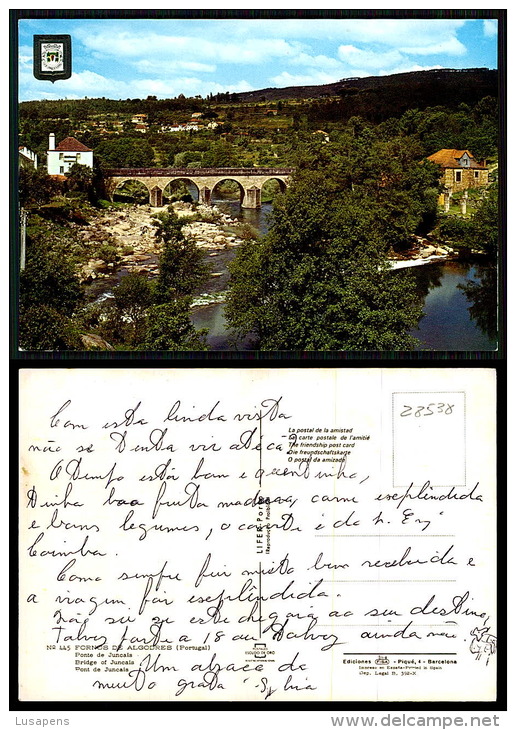 Com esta linda vista
não se tenta vir até cá?
O tempo está bom e quentinho,
Tenho boa fruta madura, carne esplêndida
e bons legumes, o
Coimbra.
Como sempre fui muito bem recebida e
a viagem foi esplêndida.
Não sei se este chegará ao seu destino,
Talvez parta a 18 ou Talvez ainda não.
Um abraço da
muito grata
28538
La postal de la amistad
La carte postale de l'amitié
The friendship post card
Die freundschaftskarte
O postal da amizade
LIFER Porto
Nº 445 FORNOS DE ALGODRES (Portugal)
Ponte de Juncais
Bridge of Juncais
Pont de Juncais
ESCUDO DE ORO
Ediciones FISA - Piqué, 4 - Barcelona
Impreso en España-Printed in Spain
Dep. Legal B.
Lusapens
delcampe.net